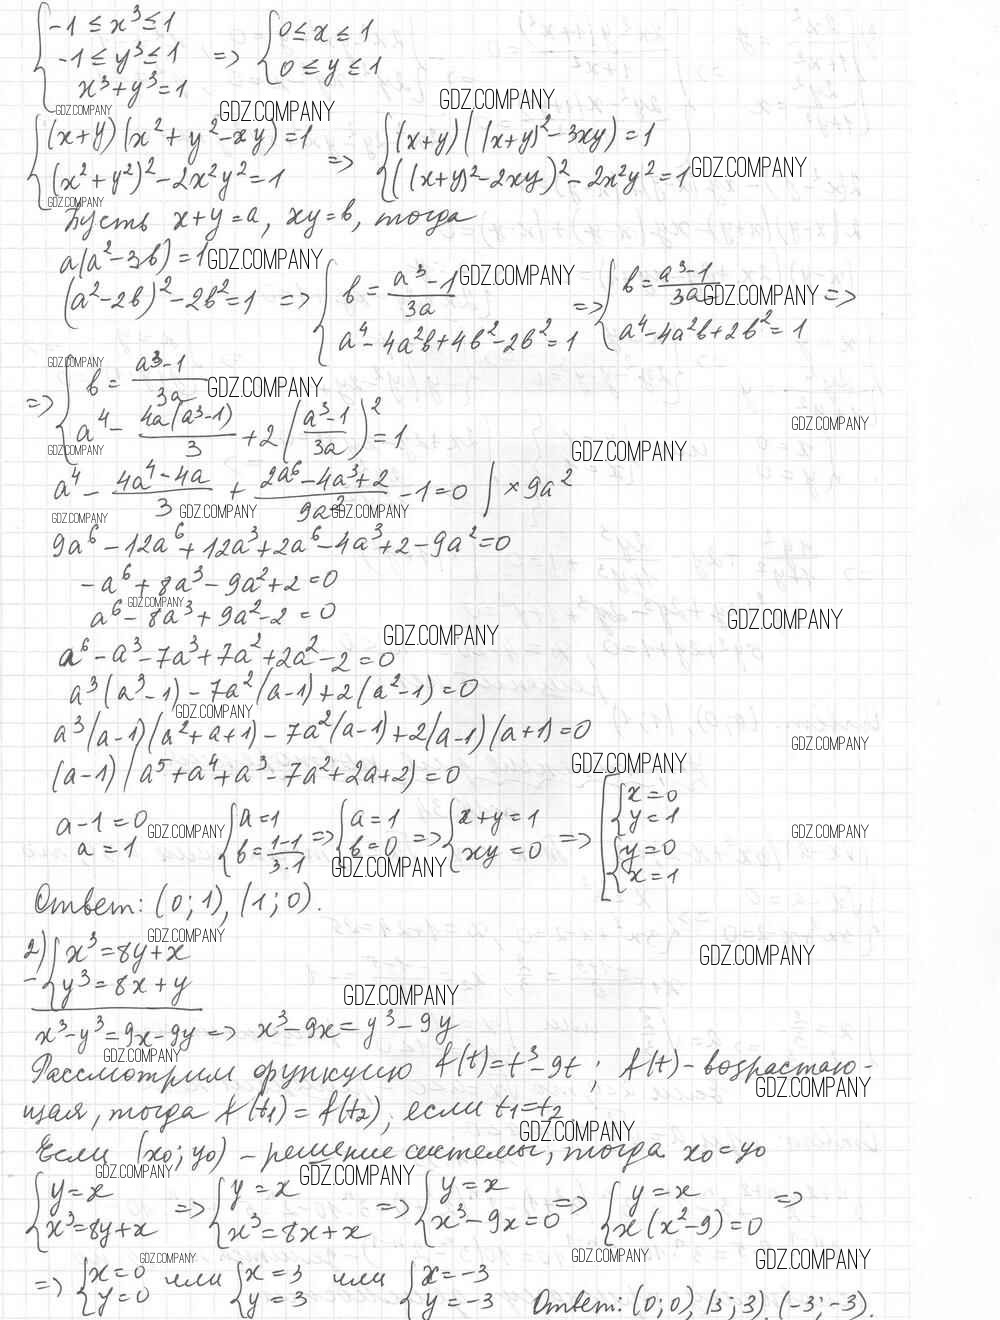 -1 ≤ x³ ≤ 1
-1 ≤ y³ ≤ 1 => { 0 ≤ x ≤ 1
x³ + y³ = 1 { 0 ≤ y ≤ 1
GDZ.COMPANY GDZ.COMPANY GDZ.COMPANY
{ (x+y)(x²+y²-xy) = 1 => { (x+y)((x+y)²-3xy) = 1
{ (x²+y²)²-2x²y² = 1 { ((x+y)²-2xy)²-2x²y² = 1 GDZ.COMPANY
GDZ.COMPANY
Пусть x+y=a, xy=b, тогда
a(a²-3b)=1 GDZ.COMPANY
(a²-2b)²-2b²=1 => { b = (a³-1)/3a GDZ.COMPANY => { b = (a³-1)/3a GDZ.COMPANY =>
{ a⁴-4a²b+4b²-2b²=1 { a⁴-4a²b+2b²=1
GDZ.COMPANY
=> { b = (a³-1)/3a GDZ.COMPANY
{ a⁴ - 4a(a³-1)/3 + 2((a³-1)/3a)² = 1
GDZ.COMPANY GDZ.COMPANY GDZ.COMPANY
a⁴ - (4a⁴-4a)/3 + (2a⁶-4a³+2)/9a² - 1 = 0 | × 9a²
GDZ.COMPANY GDZ.COMPANY GDZ.COMPANY
9a⁶-12a⁶+12a³+2a⁶-4a³+2-9a²=0
-a⁶+8a³-9a²+2=0
GDZ.COMPANY
a⁶-8a³+9a²-2=0
GDZ.COMPANY GDZ.COMPANY
a⁶-a³-7a³+7a²+2a²-2=0
a³(a³-1)-7a²(a-1)+2(a²-1)=0
GDZ.COMPANY
a³(a-1)(a²+a+1)-7a²(a-1)+2(a-1)(a+1)=0
GDZ.COMPANY
(a-1)(a⁵+a⁴+a³-7a²+2a+2)=0
GDZ.COMPANY
a-1=0 GDZ.COMPANY { a=1 => { a=1 => { x+y=1 => [ { x=0
a=1 { b=(1-1)/(3·1) { b=0 { xy=0 { y=1
{ y=0
{ x=1
GDZ.COMPANY GDZ.COMPANY
Ответ: (0;1), (1;0).
GDZ.COMPANY
2) { x³=8y+x
- { y³=8x+y
GDZ.COMPANY GDZ.COMPANY
x³-y³=9x-9y => x³-9x=y³-9y
GDZ.COMPANY
Рассмотрим функцию f(t)=t³-9t; f(t)-возрастаю-
GDZ.COMPANY
щая, тогда f(t₁)=f(t₂), если t₁=t₂
GDZ.COMPANY
Если (x₀;y₀) - решение системы, тогда x₀=y₀
GDZ.COMPANY GDZ.COMPANY
{ y=x => { y=x => { y=x => { y=x =>
{ x³=8y+x { x³=8x+x { x³-9x=0 { x(x²-9)=0
GDZ.COMPANY GDZ.COMPANY GDZ.COMPANY
=> { x=0 или { x=3 или { x=-3
{ y=0 { y=3 { y=-3 Ответ: (0;0), (3;3), (-3;-3).